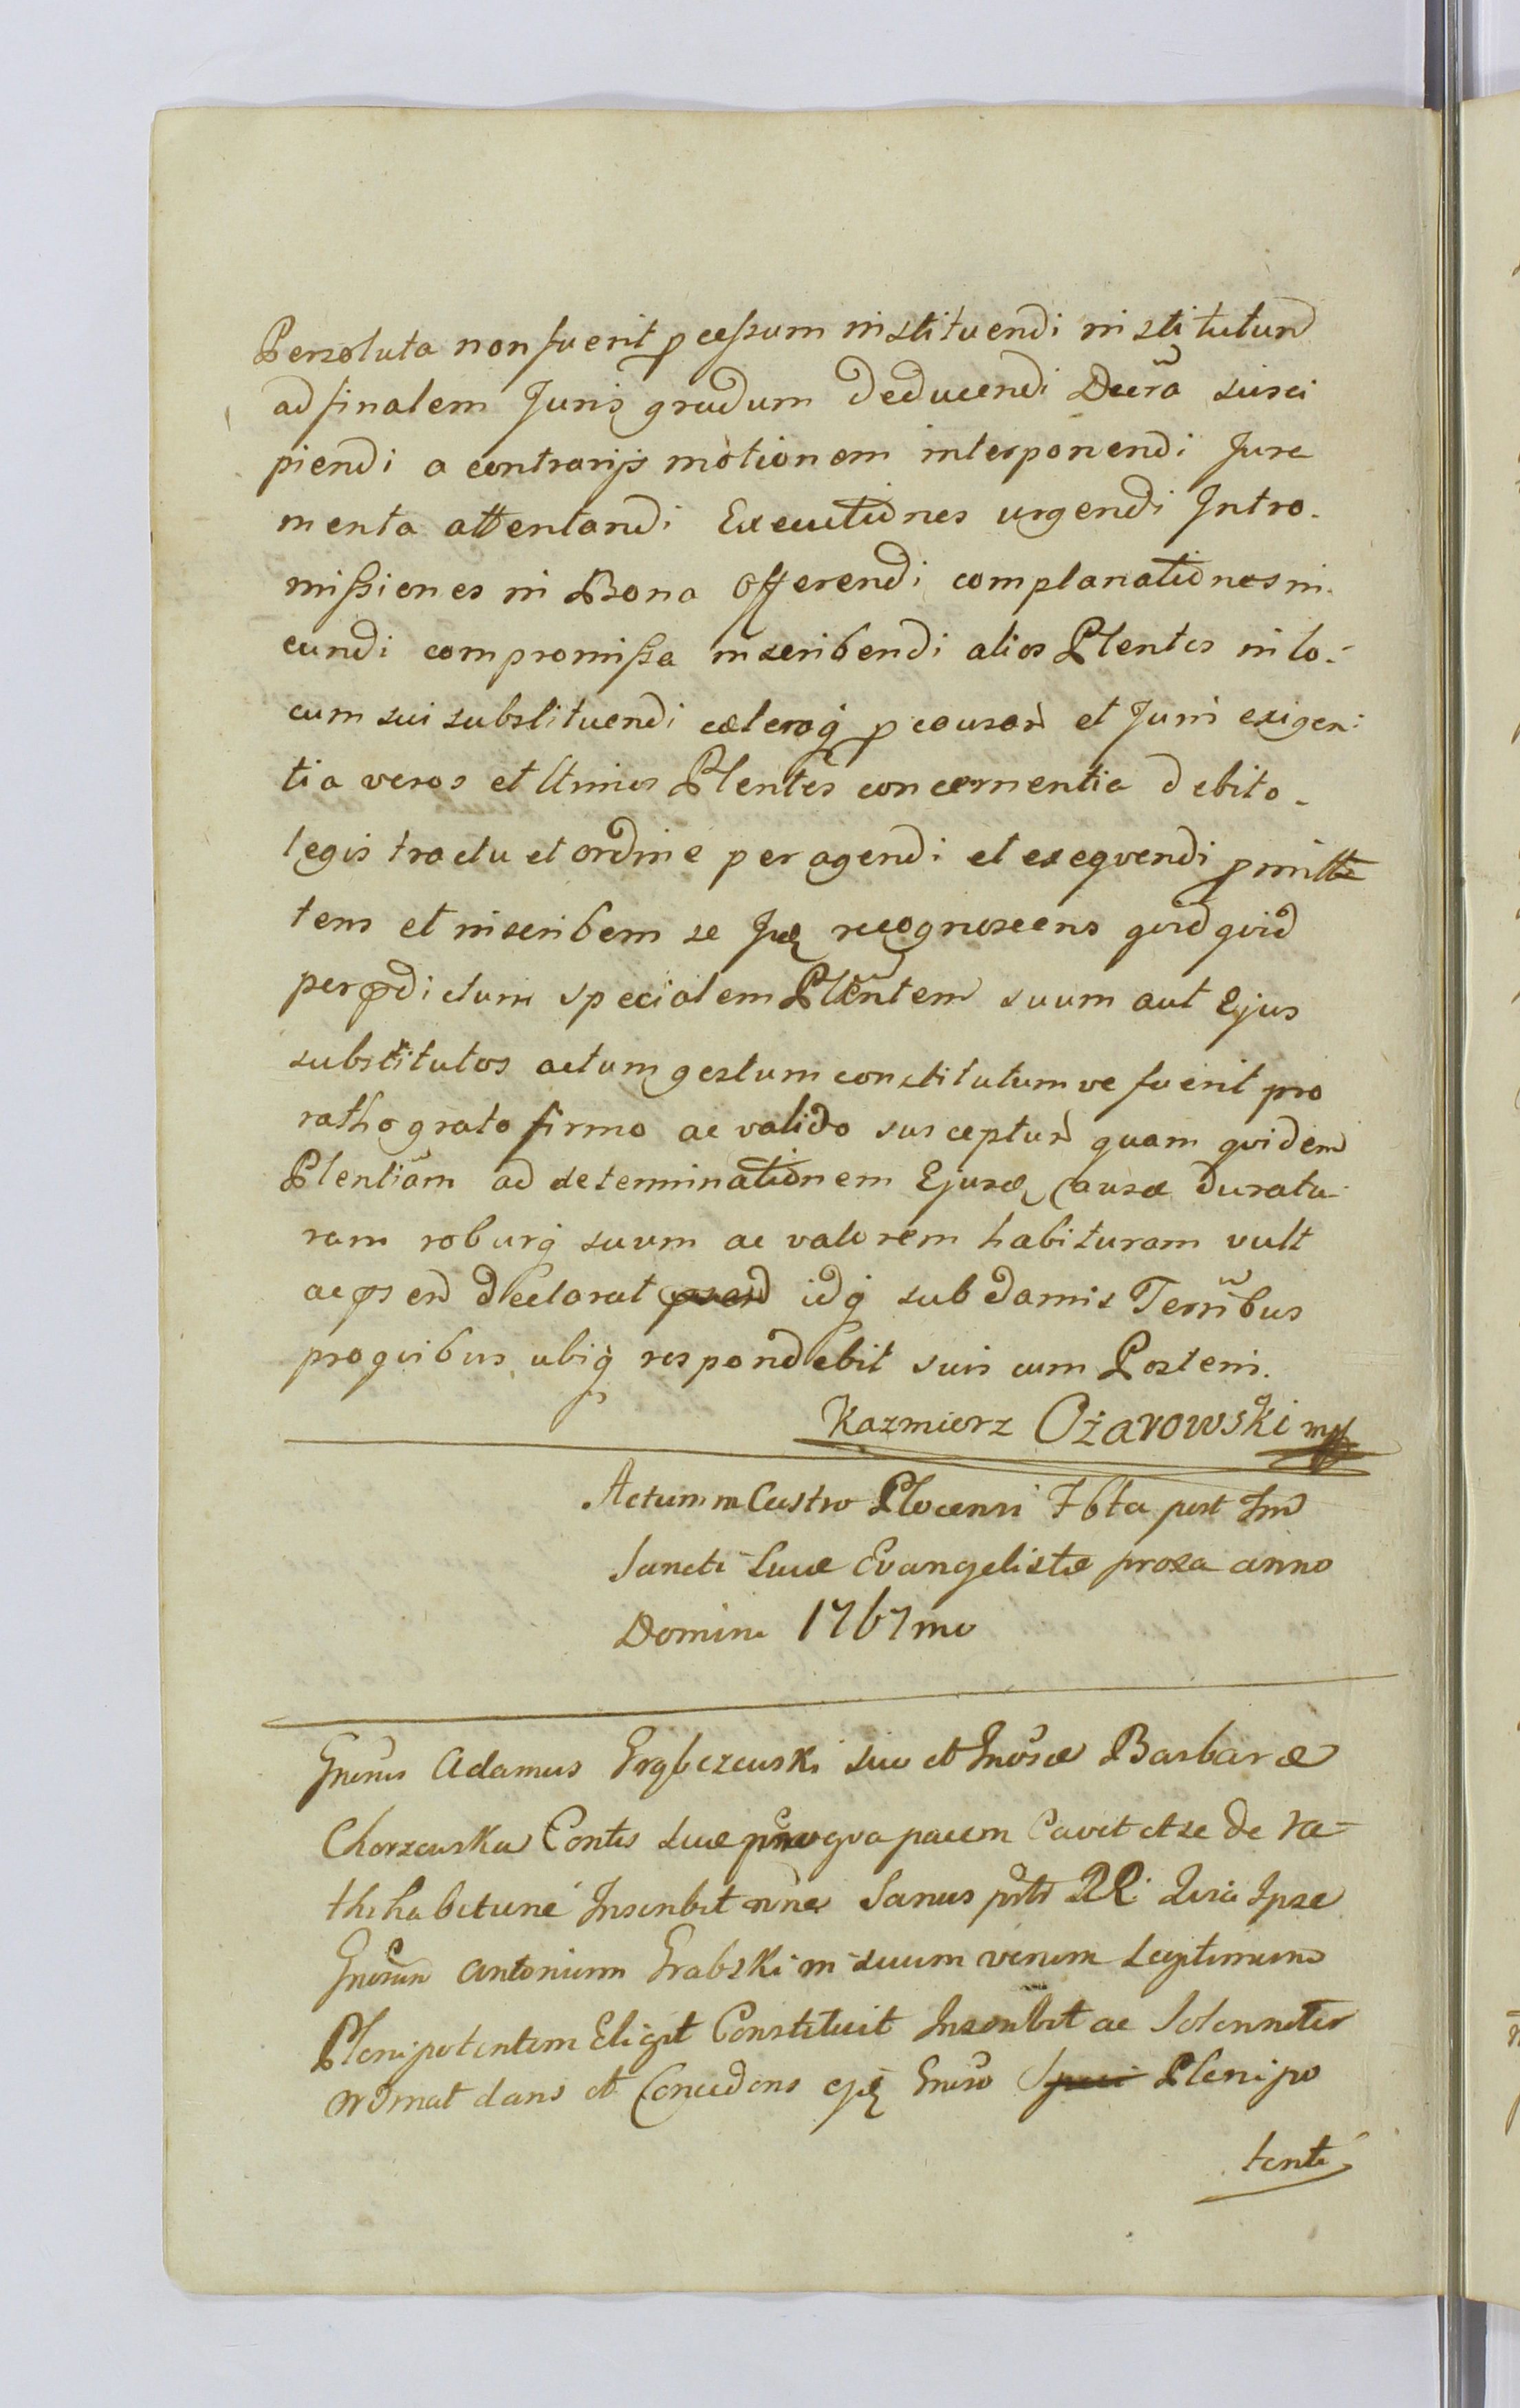 Persoluta non fuerit pcessum instituendi institutum
ad finalem Juris gradum deducendi Decra susci
piendi a contrarijs motionem interponendi Jura
menta attentandi Executiones urgendi Intro-
missiones in Bona offerendi complanationes in-
eundi compromissa inscribendi alios Plentes in lo-
cum sui substituendi caeteraq p causar et Juris exigen-
tia veros et Ltimos Plentes concernentia debito-
legis tractu et ordine peragendi et exeqvendi pmitt
tens et inscribens se Ipse recognoscens qvidqvid
per pdictum specialem Plentem suum aut Ejus
substitutos actum gestum constitutumve fuerit pro
ratho grato firmo ac valido suscepturu quam qvidem
Plentiam ad determinationem Ejusd Causae duratu-
ram roburq suum ac valorem habituram vult
ac psend declarat idq sub damis Terribus
pro qvibus ubiq respondebit suis cum Posteris.
Kazmierz Ożarowski mp
Actum in Castro Plocensi Fbta post Fm
Sancti Lucae Evangelistae proxa anno
Domini 1767mo
Gnerus Adamus Grąbczewski suo et Gnosae Barbarae
Chorzewska Contis suae noe pro qva pacem Cavet et se de ra-
thihabitune Inscribit nne Sanus Ipse
Gnosum Antonium Grabski in suum verum legitimum
Plenipotentem Eligit Constituit Inscribit ac Solenniter
ordinat dans et Concedens ejd Gnoso Plenipo
tenti